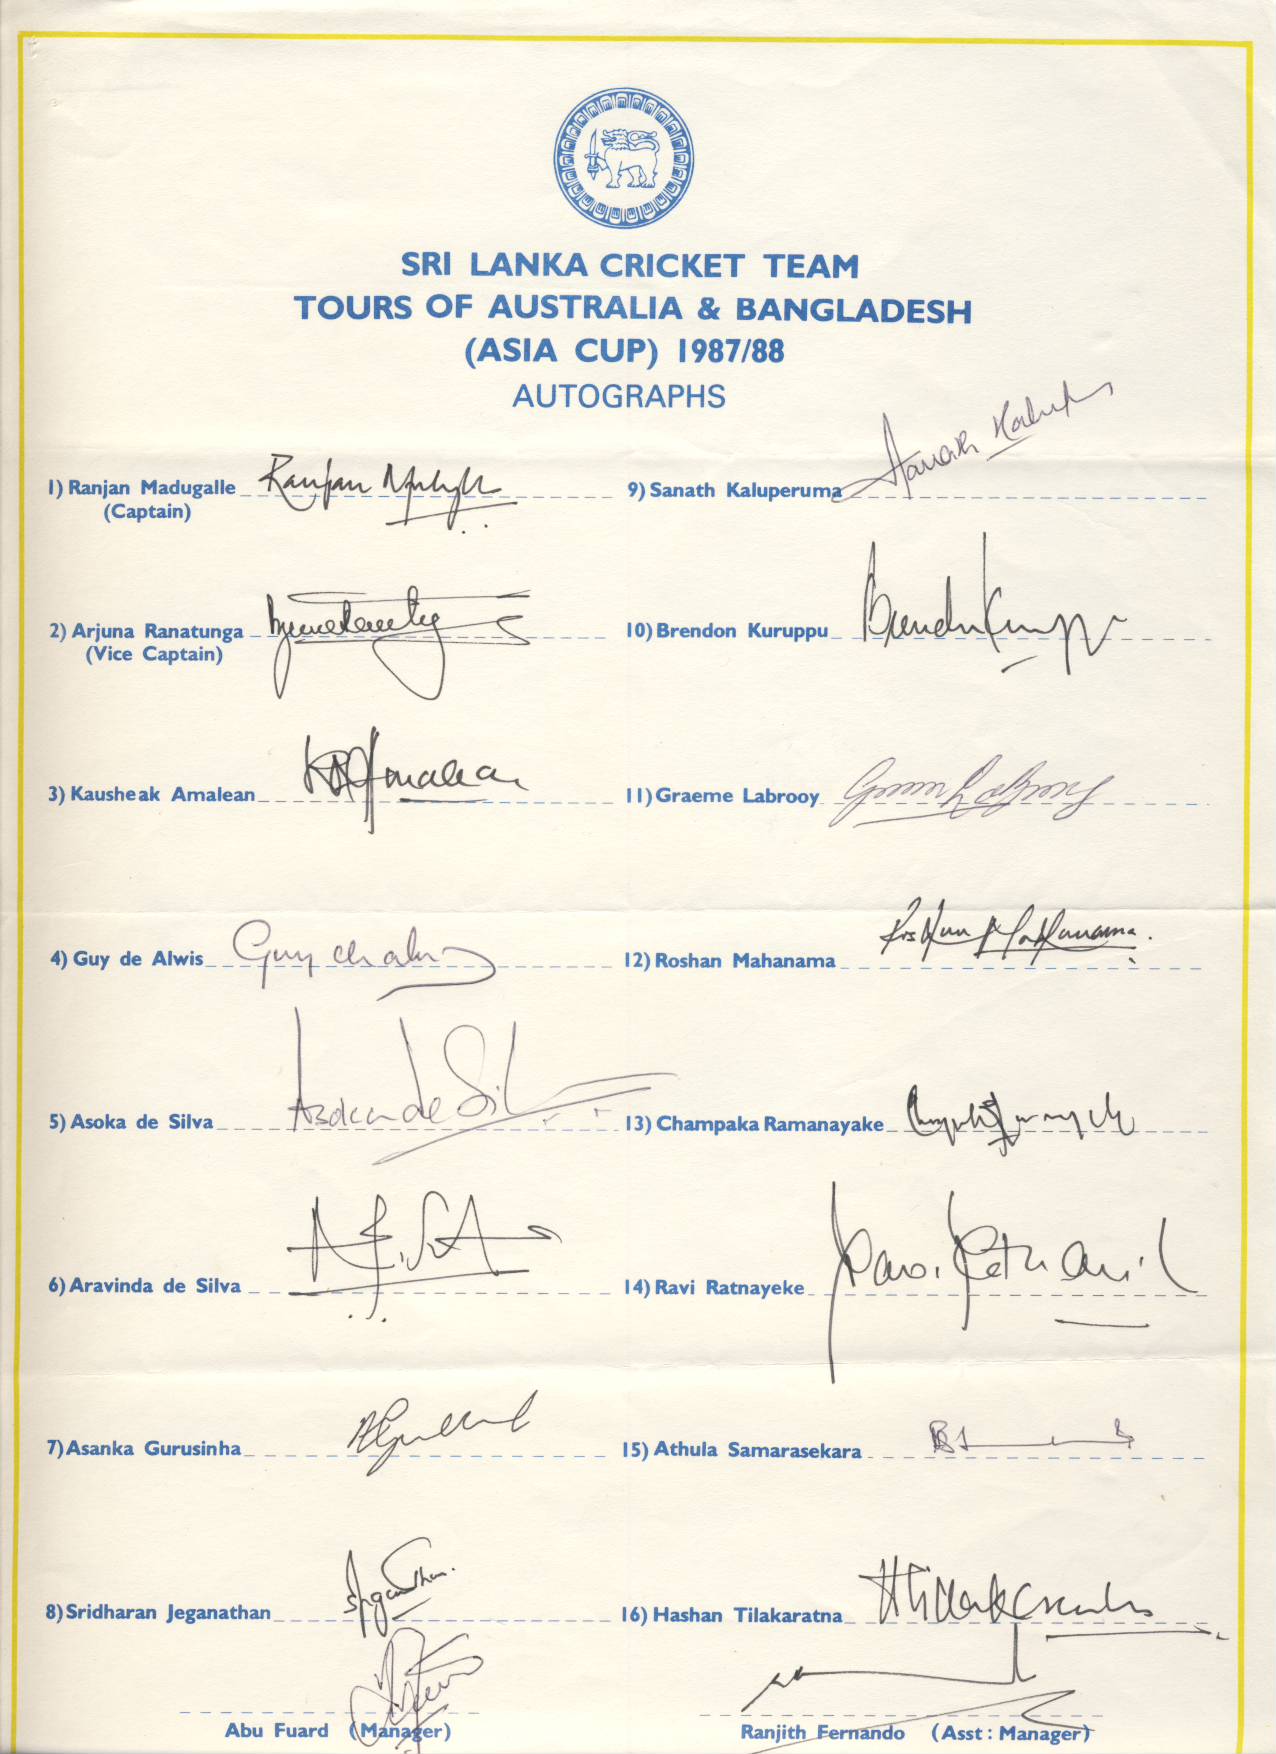 SRI LANKA CRICKET TEAM
TOURS OF AUSTRALIA & BANGLADESH
(ASIA CUP) 1987/88
AUTOGRAPHS
1) Ranjan Madugalle Ranjan
(Captain)
2) Arjuna Ranatunga
(Vice Captain)
3) Kausheak Amalean Amalean
4) Guy de Alwis Guy
5) Asoka de Silva Asoka de Sil
6) Aravinda de Silva
7) Asanka Gurusinha
8) Sridharan Jeganathan
9) Sanath Kaluperuma Sanath
10) Brendon Kuruppu Brendon
11) Graeme Labrooy
12) Roshan Mahanama Roshan Mahanama
13) Champaka Ramanayake
14) Ravi Ratnayeke Ravi
15) Athula Samarasekara
16) Hashan Tilakaratna
Abu Fuard (Manager)
Ranjith Fernando (Asst: Manager)